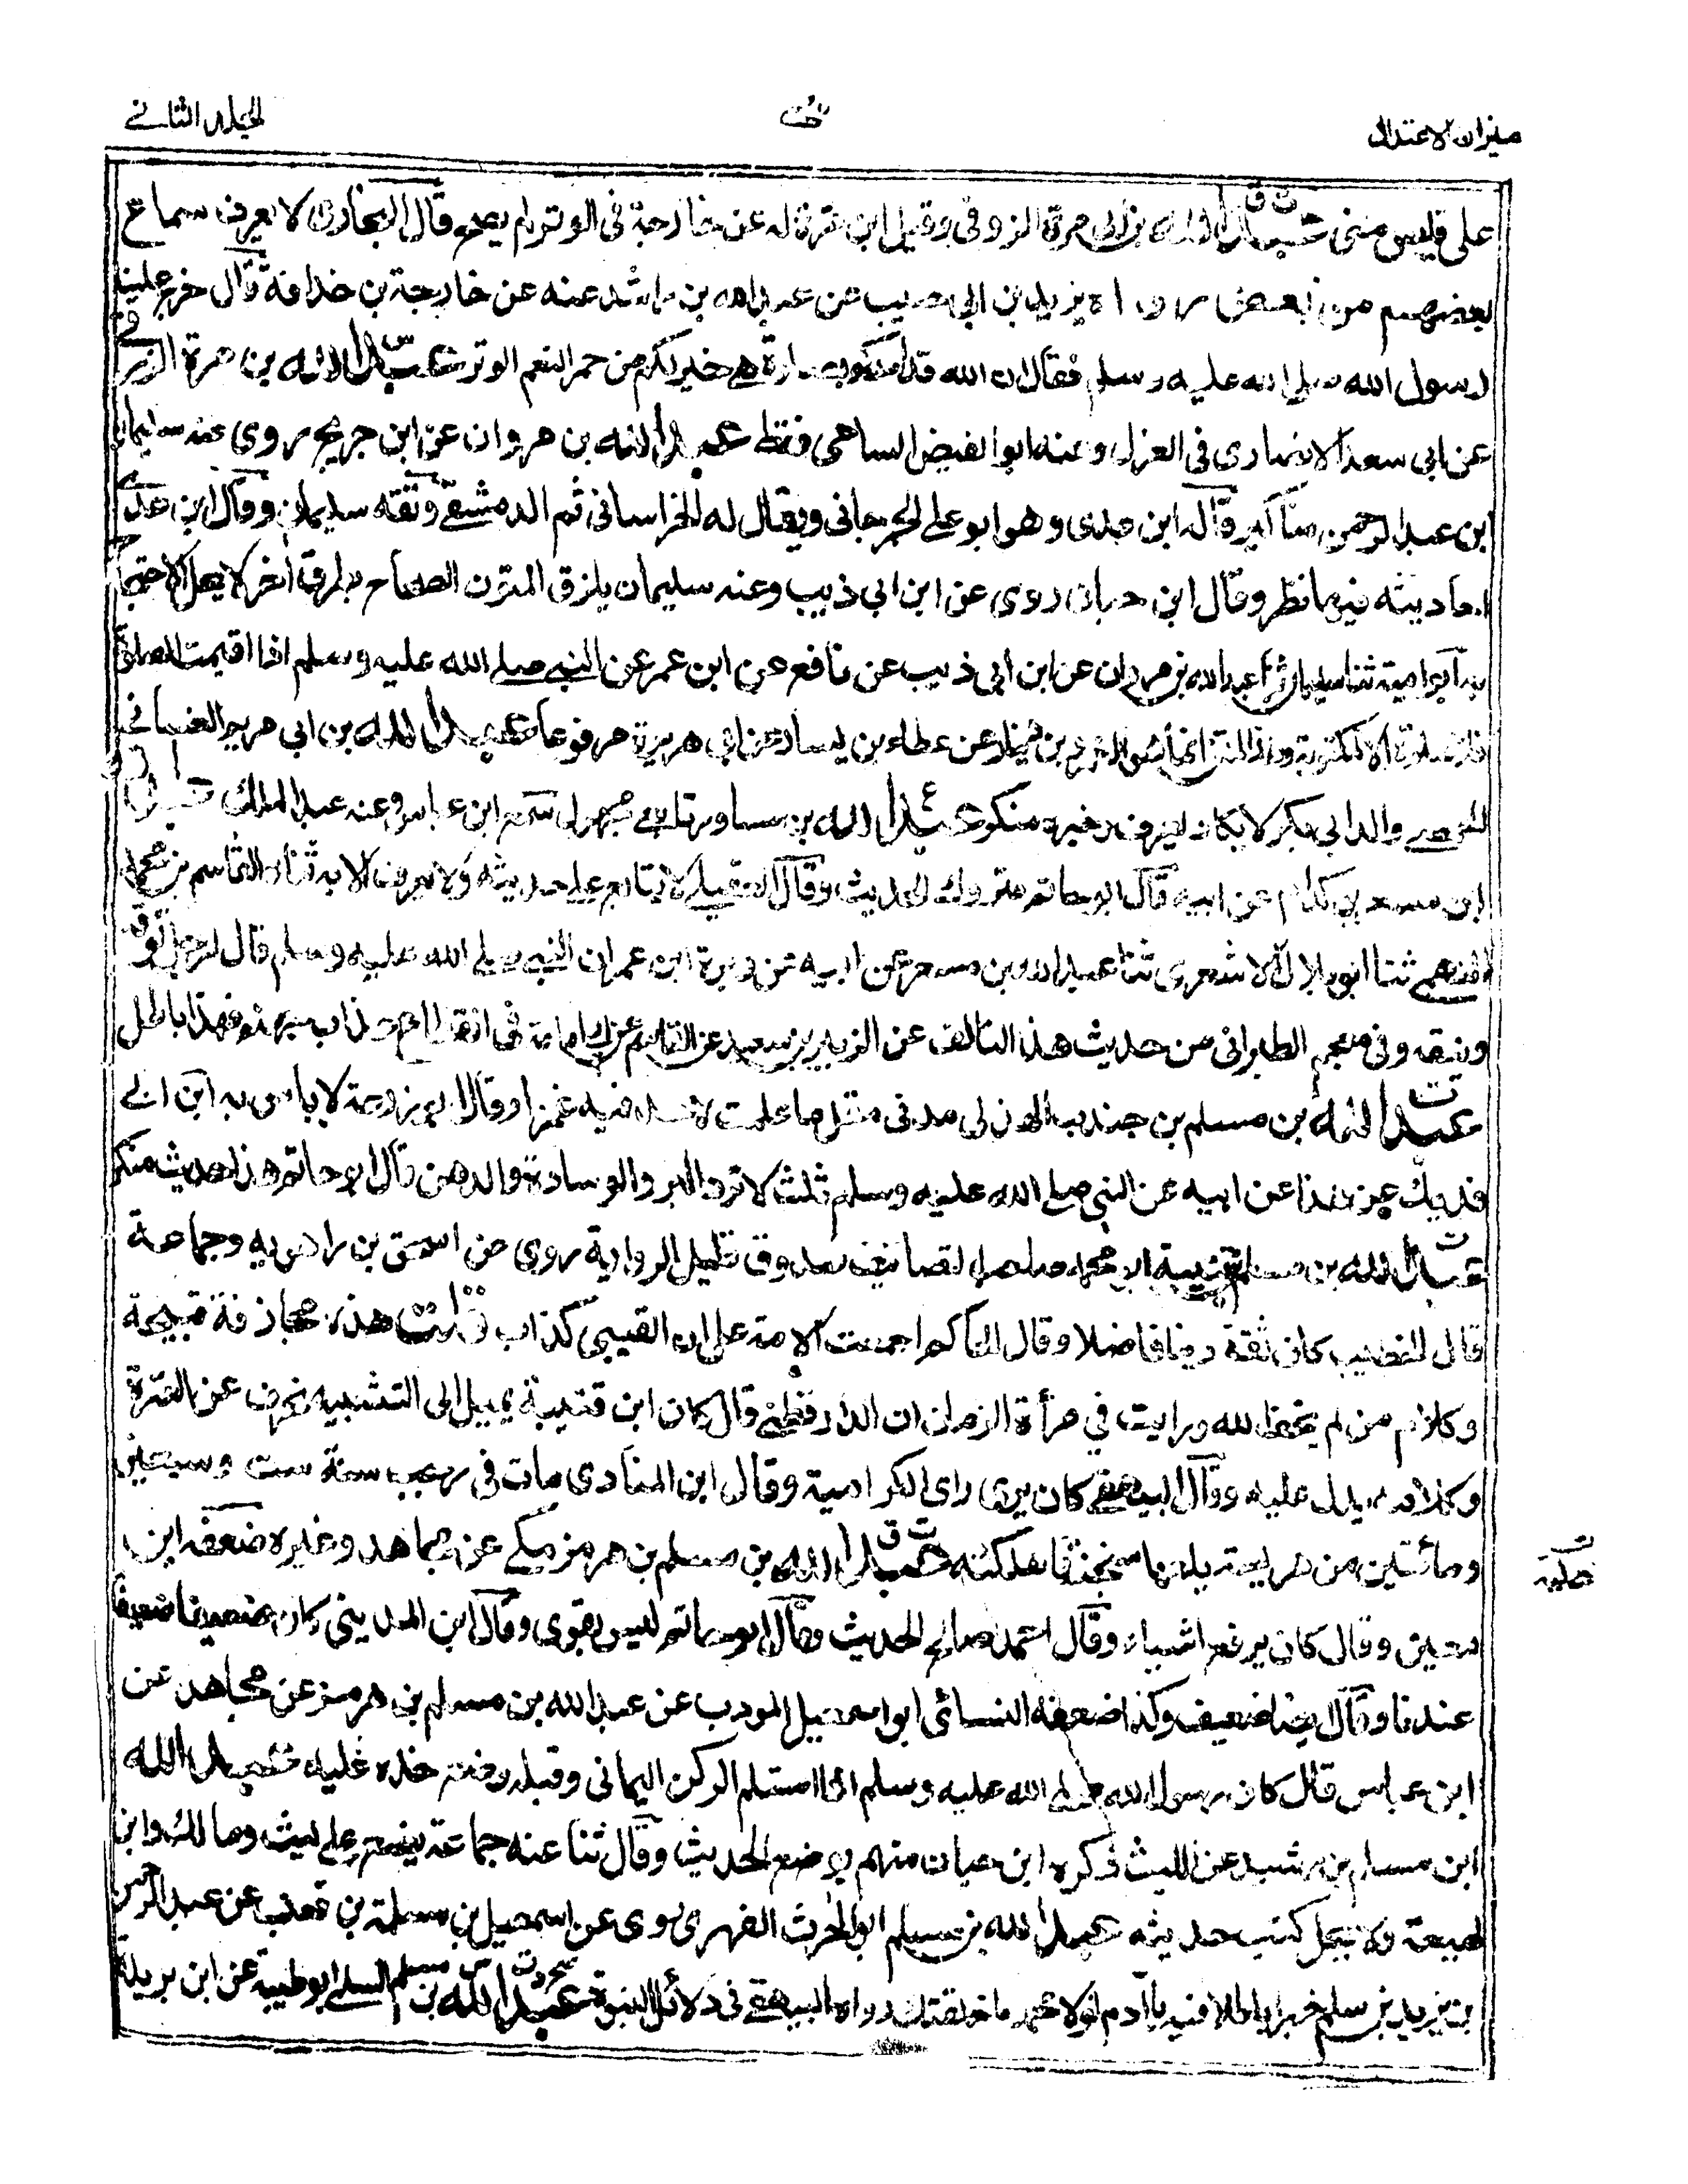 ميزان الاعتدال
الجلد الثاني
على فليس منى الله بن ابى مرة الزوفى وقيل ابن مرة له عن خارجة فى الوتر لم يصح قال البخارى لا يعرف سماع
بعضهم من بعض رواه يزيد بن ابى حبيب عن عبد الله بن راشد عنه عن خارجة بن حذافة قال خرج علينا
رسول الله صلى الله عليه وسلم فقال ان الله قد بصلوة هى خير لكم من حمر النعم الوتر عبد الله بن مرة الزرقى
عن ابى سعد الانصارى فى العزل وعنه ابو الفيض الساهى فقط عبد الله بن مروان عن ابن جريج روى عنه سليمان
ابن عبد الرحمن مناكير قاله ابن عدى وهو ابو على الجرجانى ويقال له الخراسانى ثم الدمشقى وثقه سليمان وقال ابن عدى
احاديثه فيها نظر وقال ابن حبان روى عن ابن ابى ذيب وعنه سليمان يلزق المتون الصحاح بطرق اخر لا يحل الاحتجاج
به ابو امية ثنا سليمان ثنا عبد الله بن مروان عن ابن ابى ذيب عن نافع عن ابن عمر عن النبى صلى الله عليه وسلم اذا اقيمت الصلوة
فلا صلوة الا المكتوبة وهذا المتن انما هو بن دينار عن عطاء بن يسار عن ابى هريرة مرفوعا عبد الله بن ابى مريم الغسانى
والد ابى بكر لا يكاد يعرف وخبره منكر عبد الله بن مساور تابعى مجهول سمع ابن عباس وعنه عبد الملك
ابن مسعر بن كدام عن ابيه قال ابو حاتم متروك الحديث وقال العقيلى لا يتابع على حديثه ولا يعرف الا به ثناه القاسم بن محمد
ثنا ابو بلال الاشعرى ثنا عبد الله بن مسعر عن ابيه عن وبرة ابن عمر ان النبى صلى الله عليه وسلم قال لرجل توقه
وتنقه وفى معجم الطبرانى من حديث هذا التالف عن الزبير بن سعيد عن القاسم عن ابى امامة فى انقطاع عذاب جهنم فهذا باطل
عبد الله بن مسلم بن جندب الهذلى مدنى مقل ما علمت لاحد فيه غمزا وقال ابو زرعة لا باس به ابن ابى
فديك عن هذا عن ابيه عن النبى صلى الله عليه وسلم ثلث لا ترد اللبن والوسادة والدهن قال ابو حاتم هذا حديث منكر
عبد الله بن مسلم بن قتيبة ابو محمد صاحب التصانيف صدوق قليل الرواية روى عن اسحق بن راهويه وجماعة
قال الخطيب كان ثقة دينا فاضلا وقال الحاكم اجمعت الامة على ان القتيبى كذاب قلت هذه مجازفة قبيحة
وكلام من لم يخف الله ورايت فى مرأة الزمان ان الدارقطنى قال كان ابن قتيبة يميل الى التشبيه منحرف عن العترة
وكلامه يدل عليه وقال البيهقى كان يرى راى الكرامية وقال ابن المنادى مات فى رجب سنة ست وسبعين
ومائتين من هريسة بلعها سخنة فاهلكته عبد الله بن مسلم بن هرمز مكى عن مجاهد وغيره ضعفه ابن
معين وقال كان يرفع اشياء وقال احمد صالح الحديث وقال ابو حاتم ليس بقوى وقال ابن المدينى كان ضعيفا ضعيفا
عندنا وقال ايضا ضعيف وكذا ضعفه النسائى ابو اسمعيل المودب عن عبد الله بن مسلم بن هرمز عن مجاهد عن
ابن عباس قال كان رسول الله صلى الله عليه وسلم اذا استلم الركن اليمانى وقبله وضع خده عليه عبد الله
ابن مسلم بن رشيد عن الليث ذكره ابن حبان متهم بوضع الحديث وقال ثنا عنه جماعة يضع على ليث ومالك وابن
لهيعة ولا يحل كتب حديثه عبد الله بن مسلم ابو الحرث الفهرى روى عن اسمعيل بن مسلمة بن قعنب عن عبد الرحمن
بن يزيد بن سلم خبرا باطلا فيه يا آدم لولا محمد ما خلقتك رواه البيهقى فى دلائل النبوة عبد الله بن مسلم السلمى ابو طيبة عن ابن بريدة